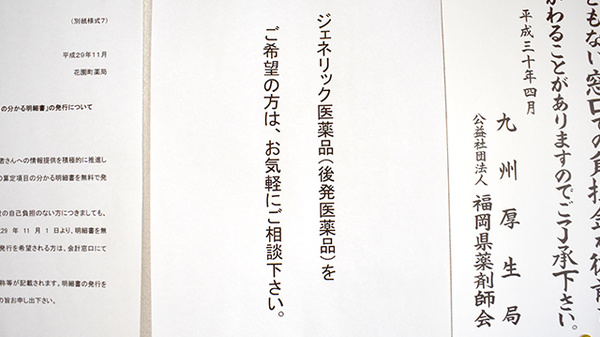 (別紙様式7)
平成29年11月
花園町薬局
の分かる明細書」の発行について
者さんへの情報提供を積極的に推進し
の算定項目の分かる明細書を無料で発
の自己負担のない方につきましても、
29 年 11 月 1 日より、明細書を無
発行を希望される方は、会計窓口にて
称等が記載されます。明細書の発行を
の旨お申し出下さい。
ジェネリック医薬品(後発医薬品)を
ご希望の方は、お気軽にご相談下さい。
ともない窓口での負担金
かわることがありますのでご了承下さい。
平成三十年四月
九州厚生局
公益社団法人 福岡県薬剤師会